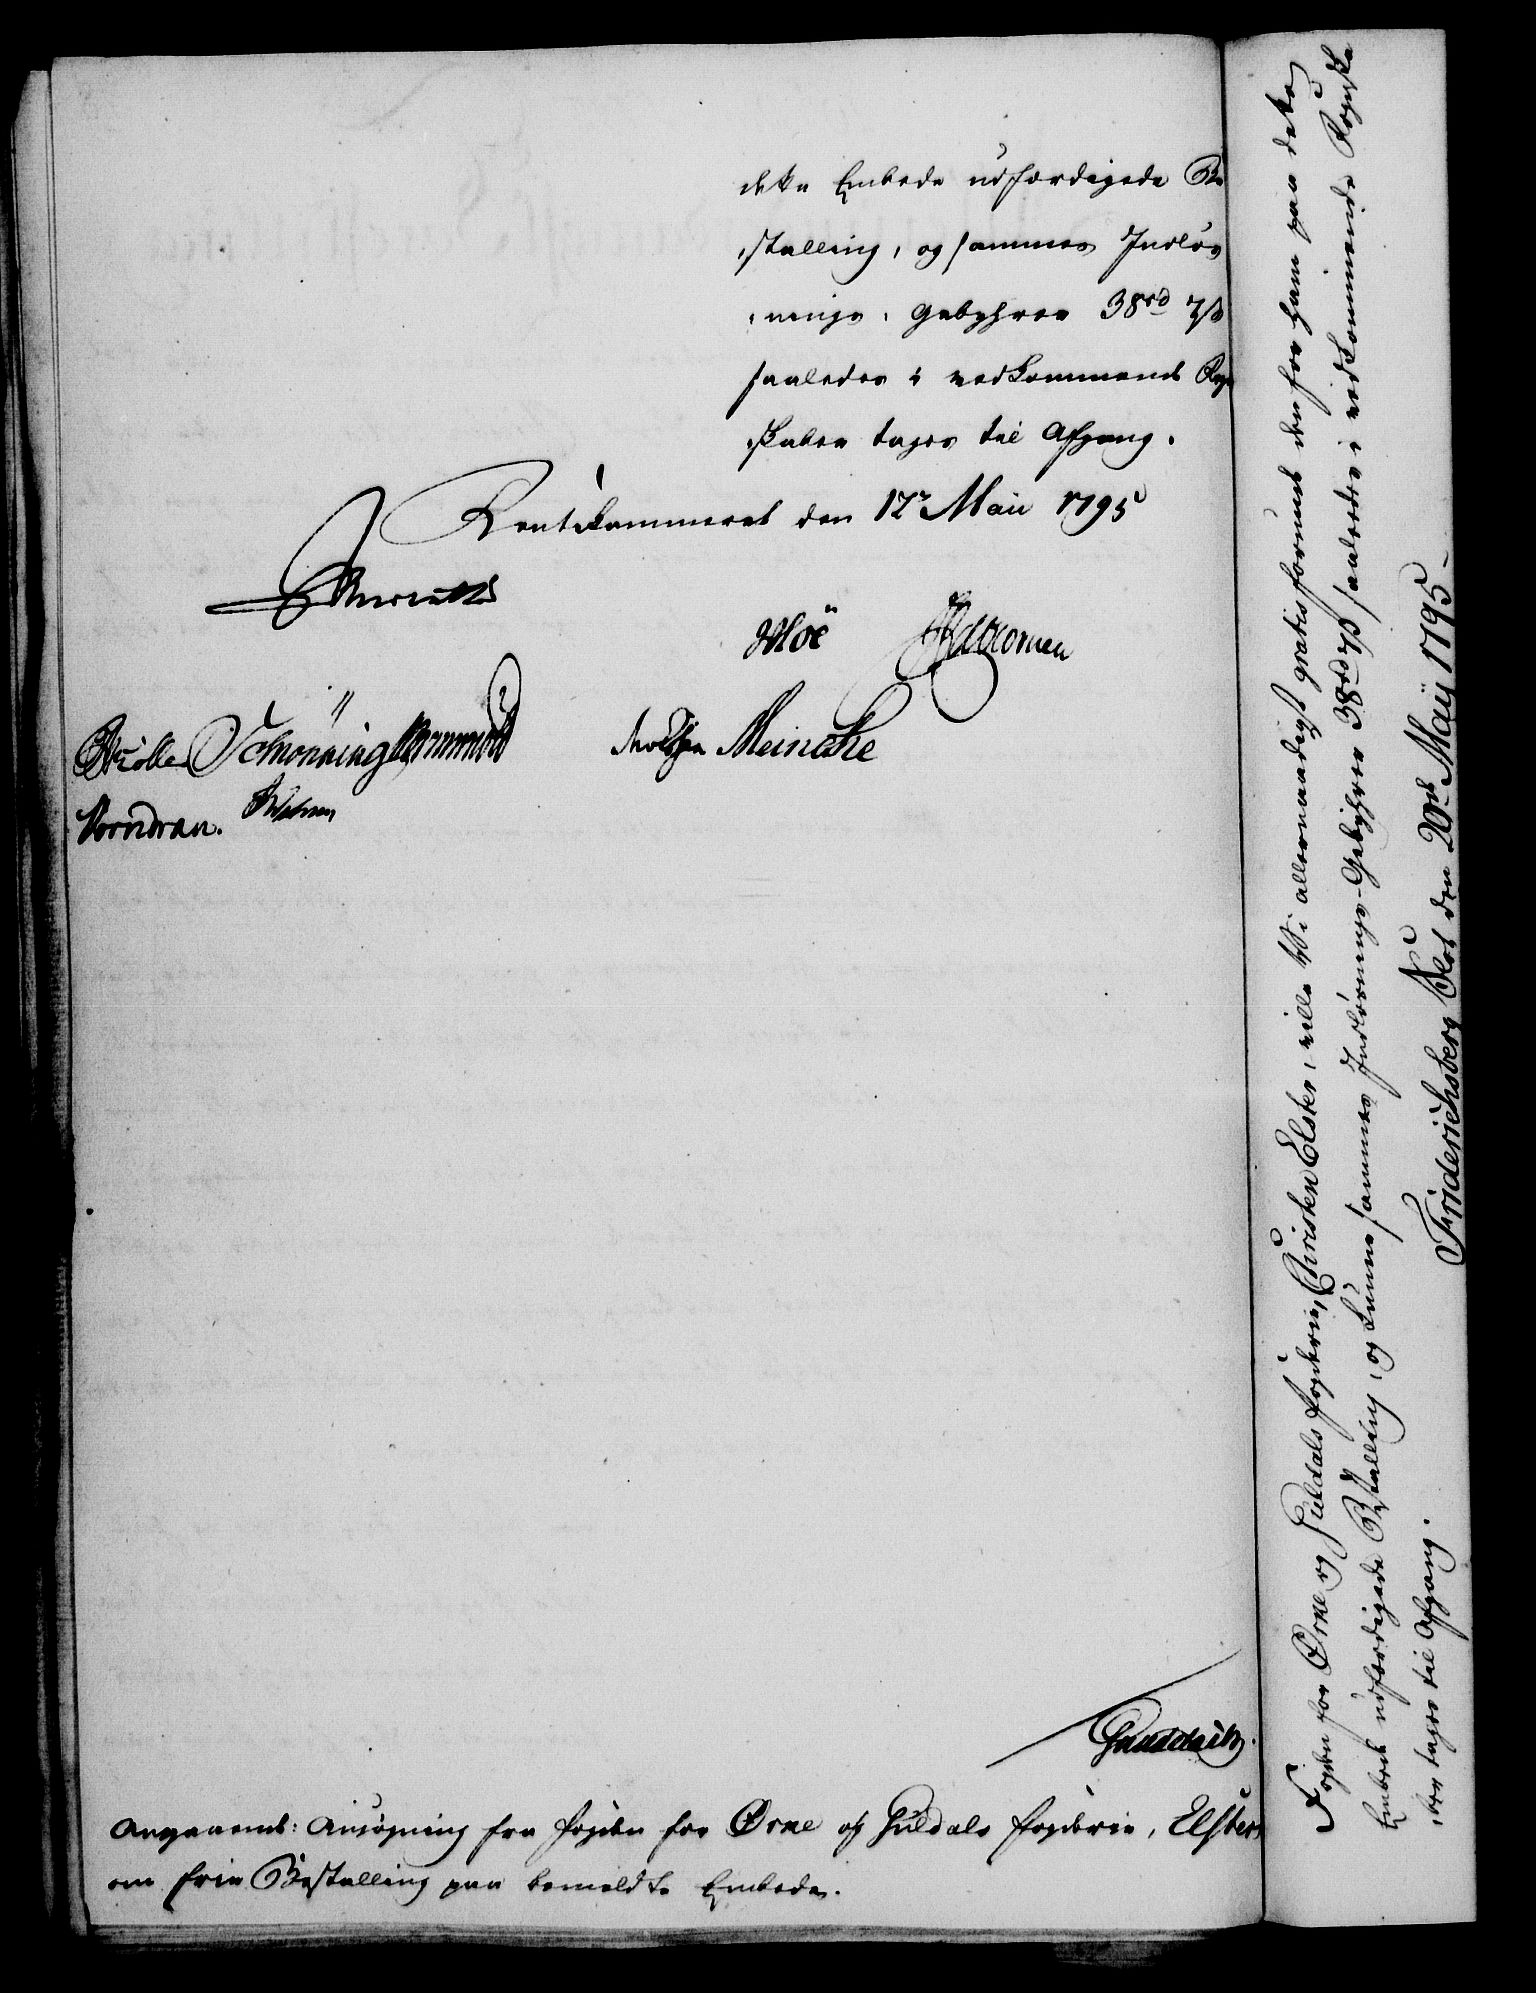 dette Embede udfærdigede Be
stalling, og sammes Indløs
nings, Gebyhrer 38rd 7ß
saaledes i vedkommende Reg
skaber tages til Afgang.
Rentekammeret den 12te Maii 1795
Moë
Schönning Wormskiold
Meincke
Vorndran.
Angaaend: Ansøgning fra Fogden for Ørke og Guldals Fogderie, Elster,
om frie Bestalling paa bemeldte Embede.
Fogden for Ørke og Guldals Fogderie, Christen Elster, ville Vi allernaadigst gratis forunde den for ham paa dette
Embede udfærdigede Bestalling, og kunne sammes Indløsnings-Gebyhrer 38rd 7ß saaledes i vedkommende Regnska
ber tages til Afgang.
Friderichsberg Slot den 20de Maij 1795